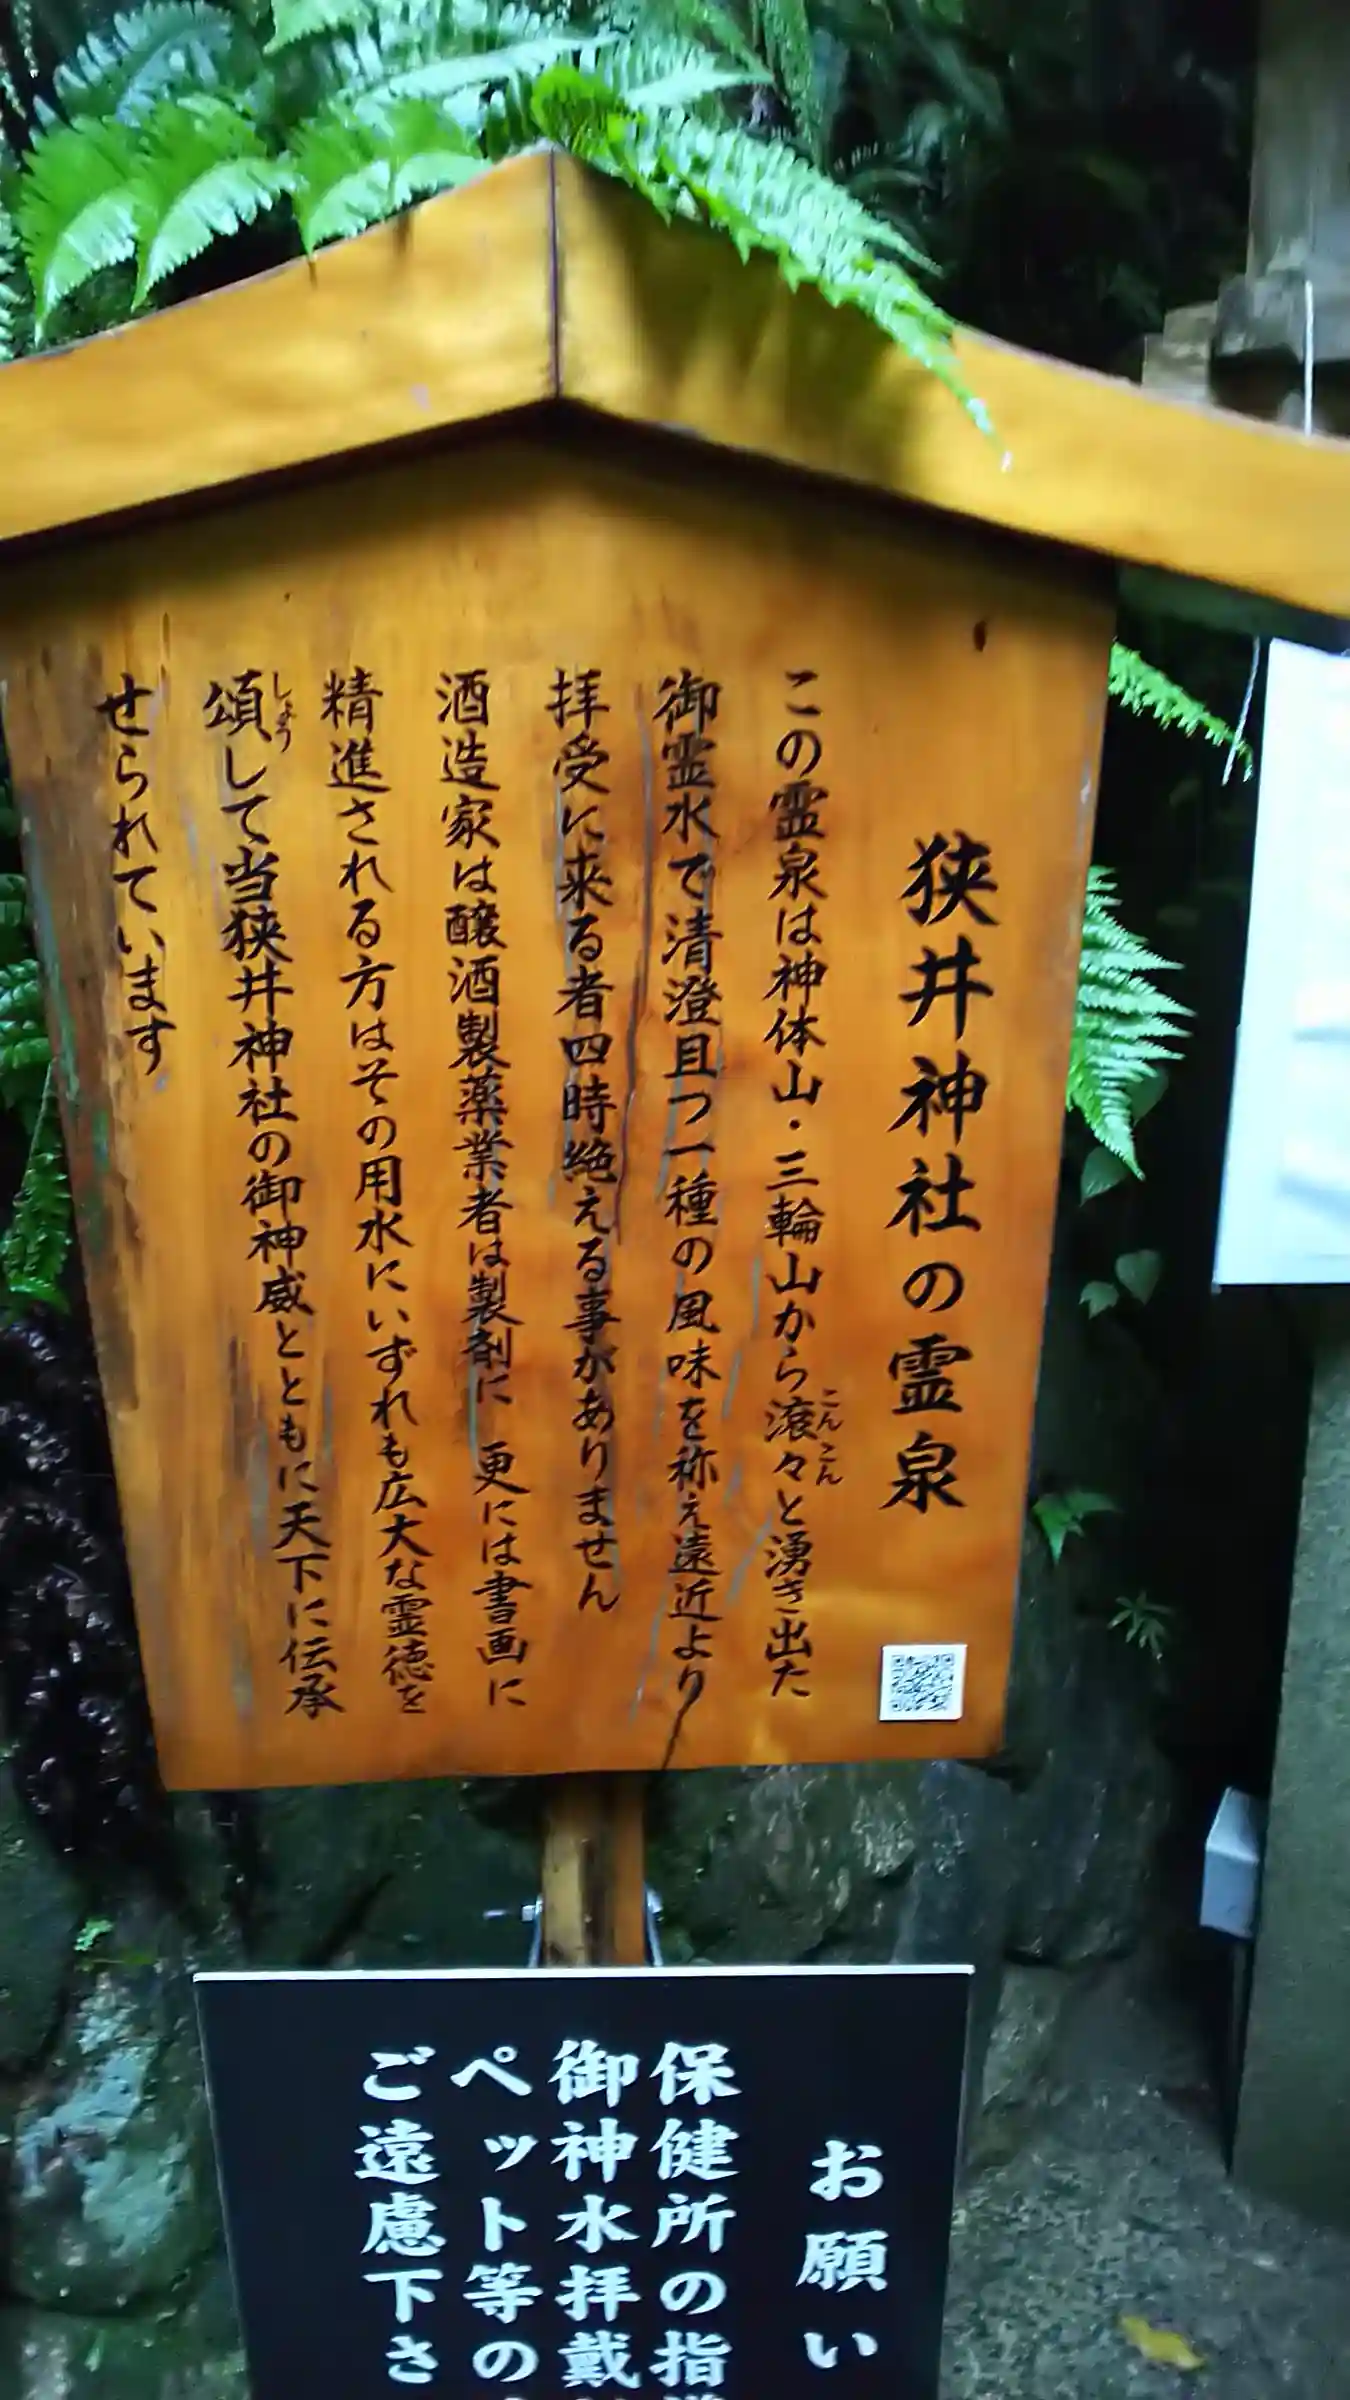 狭井神社の霊泉
この霊泉は神体山・三輪山から滾々と湧き出た
こんこん
御霊水で清澄且つ一種の風味を称え遠近より
拝受に来る者四時絶える事がありません
酒造家は醸酒製薬業者は製剤に 更には書画に
精進される方はその用水にいずれも広大な霊徳を
頌して当狭井神社の御神威とともに天下に伝承
しょう
せられています
お願い
保健所の指
御神水拝戴
ペット等の
ご遠慮下さ